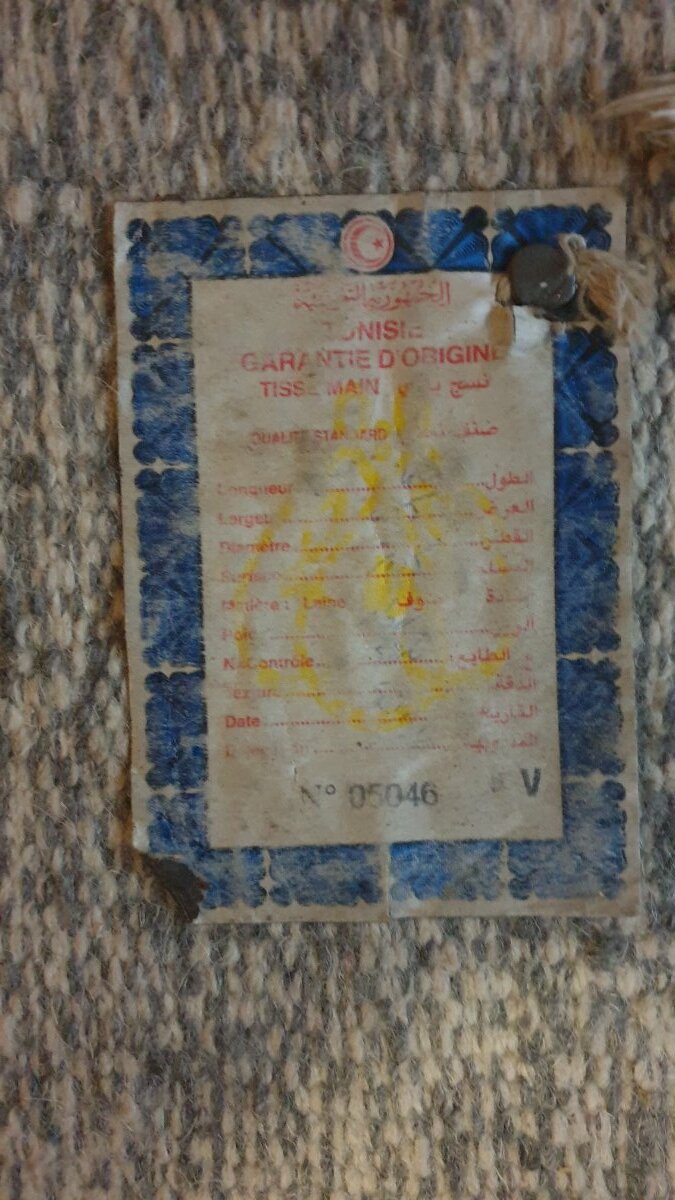 الجمهورية التونسية
TUNISIE
GARANTIE D'ORIGINE
TISSE MAIN نسج يدوي
QUALITE STANDARD صنف
Longueur الطول
Largeur العرض
Diamètre القطر
Surface
Matière: Laine صوف
Poids
N. Contrôle الطابع
Texture الدقة
Date التاريخ
N° 05046 V